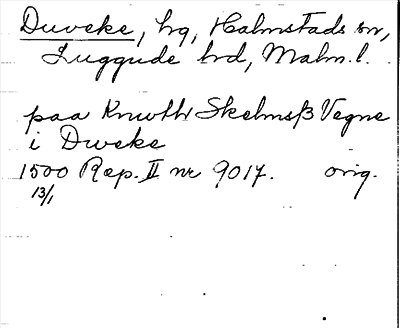 Duveke, hg, Halmstads sn,
Luggude hd, Malm. l.
paa Knwthr Skelmsß Vegne
i Dweke
1500 Rep. II nr 9017. orig.
13/1